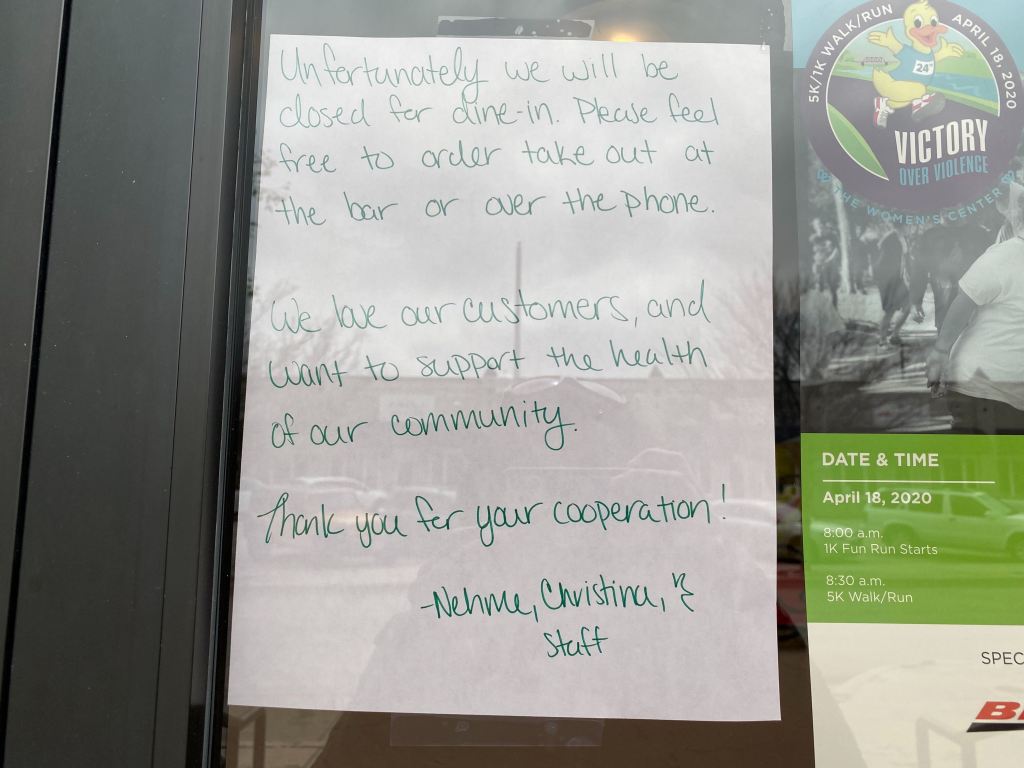 Unfortunately we will be
closed for dine-in. Please feel
free to order take out at
the bar or over the phone.
We love our customers, and
want to support the health
of our community.
Thank you for your cooperation!
-Nehme, Christina, &
Staff
5K/1K WALK/RUN APRIL 18, 2020
24TH
VICTORY
OVER VIOLENCE
THE WOMEN'S CENTER
DATE & TIME
April 18, 2020
8:00 a.m.
1K Fun Run Starts
8:30 a.m.
5K Walk/Run
SPEC